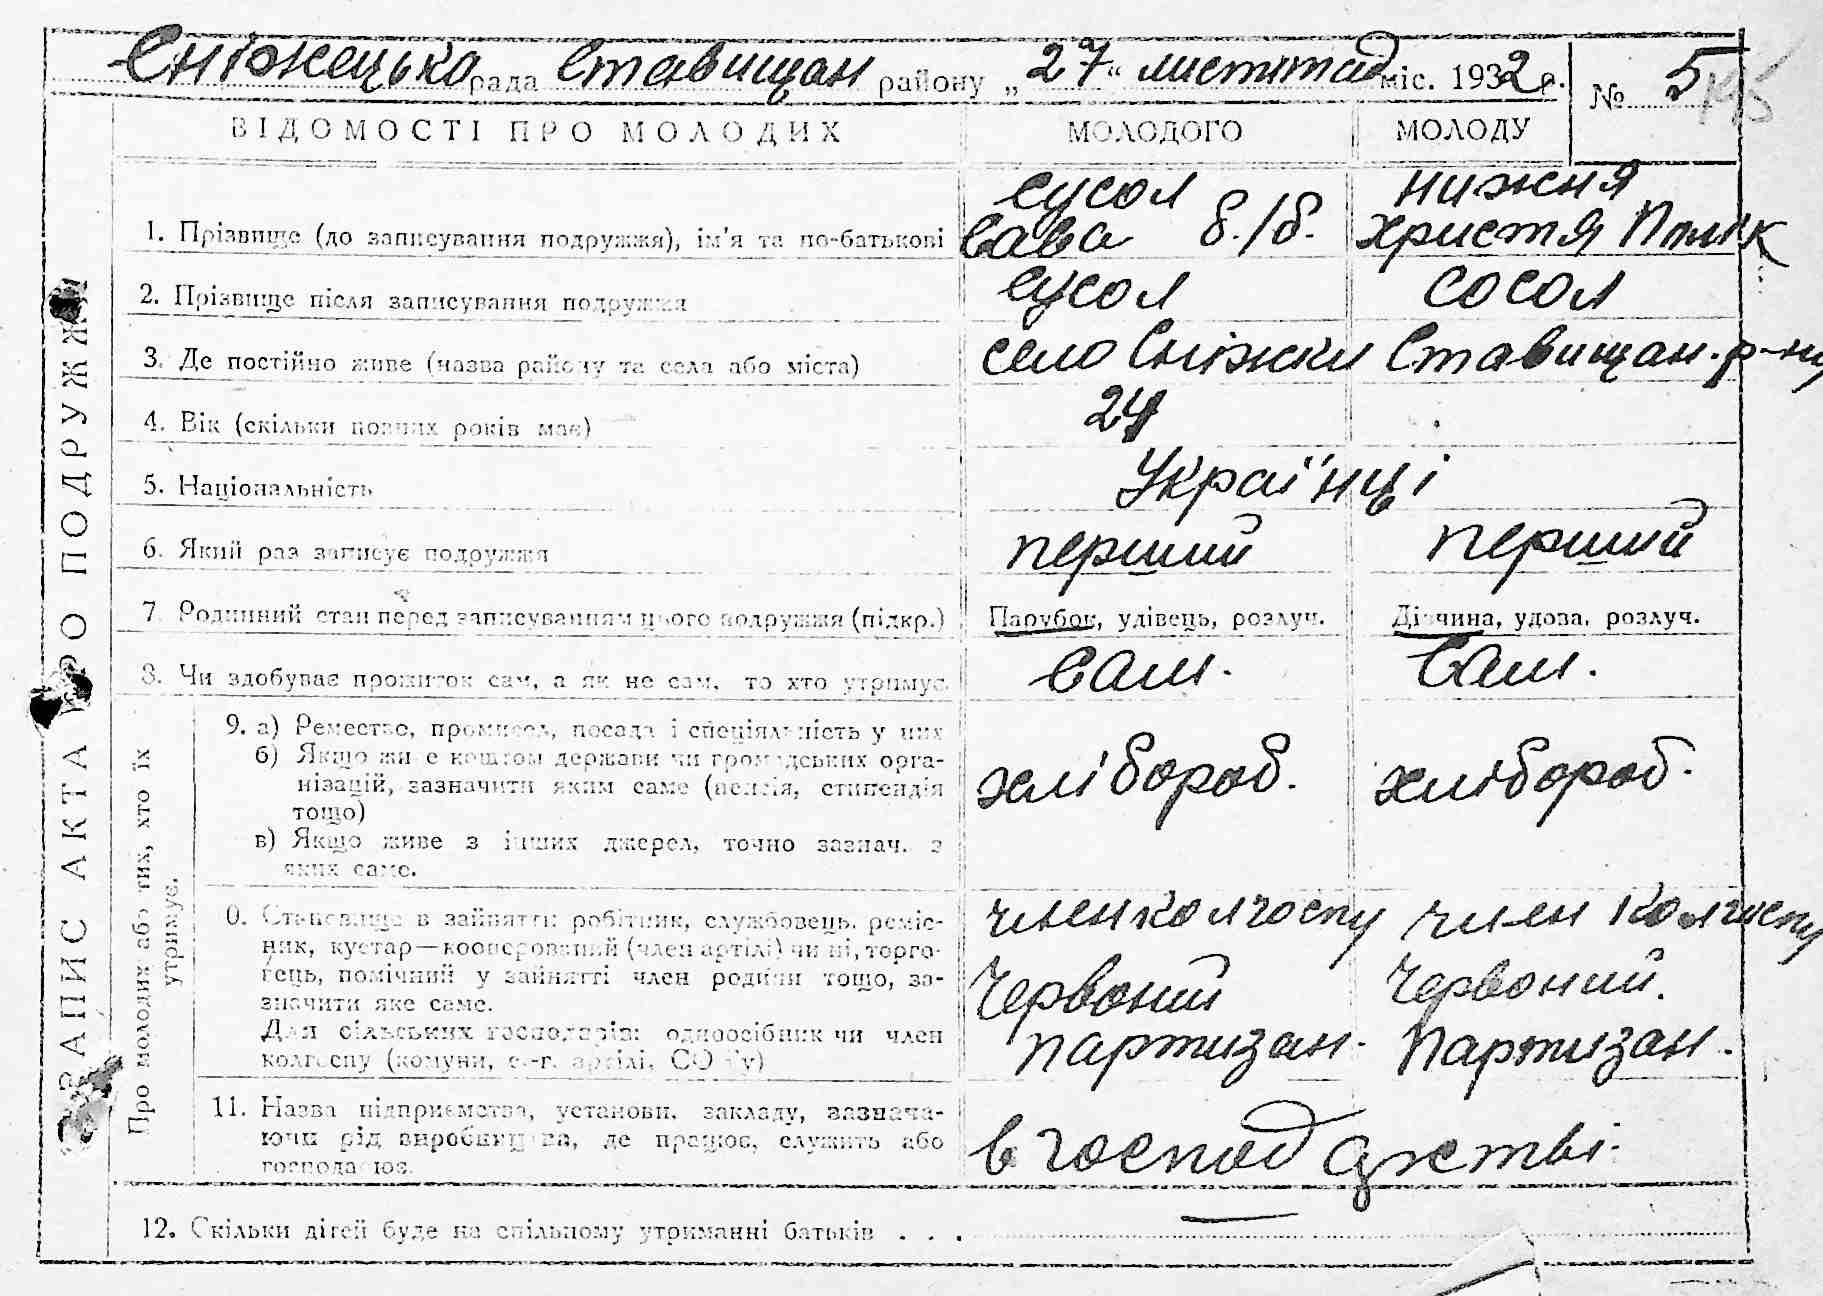 Сніжецька рада Ставищан району „27" листопад міс. 1932 р. № 5
ВІДОМОСТІ ПРО МОЛОДИХ МОЛОДОГО МОЛОДУ
ЗАПИС АКТА ПРО ПОДРУЖЖЯ
сусол нижня
1. Прізвище (до записування подружжя), ім'я та по-батькові Сава б./б. христя
2. Прізвище після записування подружжя сусол сосол
3. Де постійно живе (назва району та села або міста) село Сніжки Ставищан. р-ну
4. Вік (скільки повних років має) 24
5. Національність Українці
6. Який раз записує подружжя перший перший
7. Родинний стан перед записуванням цього подружжя (підкр.) Парубок, удівець, розлуч. Дівчина, удова, розлуч.
8. Чи здобуває прожиток сам, а як не сам, то хто утримує. Сам. Сам.
Про молодих або тих, хто їх
утримує.
9. а) Ремество, промисел, посада і спеціяльність у них
б) Якщо живе коштом держави чи громадських орга-
нізацій, зазначити яким саме (пенсія, стипендія
тощо)
хлібороб. хлібороб.
в) Якщо живе з інших джерел, точно зазнач. з
яких саме.
0. Становище в зайнятті: робітник, службовець, реміс-
ник, кустар—кооперований (член артілі) чи ні, торго-
вець, помічний у зайнятті член родини тощо, за-
значити яке саме.
Для сільських господарів: одноосібник чи член
колгоспу (комуни, с.-г. артілі, СОЗ'у)
член колгоспу член колгоспу
Червоний Червоний.
партизан. Партизан.
11. Назва підприємства, установи, закладу, зазнача-
ючи рід виробництва, де працює, служить або
господарює.
в господарстві.
12. Скільки дітей буде на спільному утриманні батьків . . . —